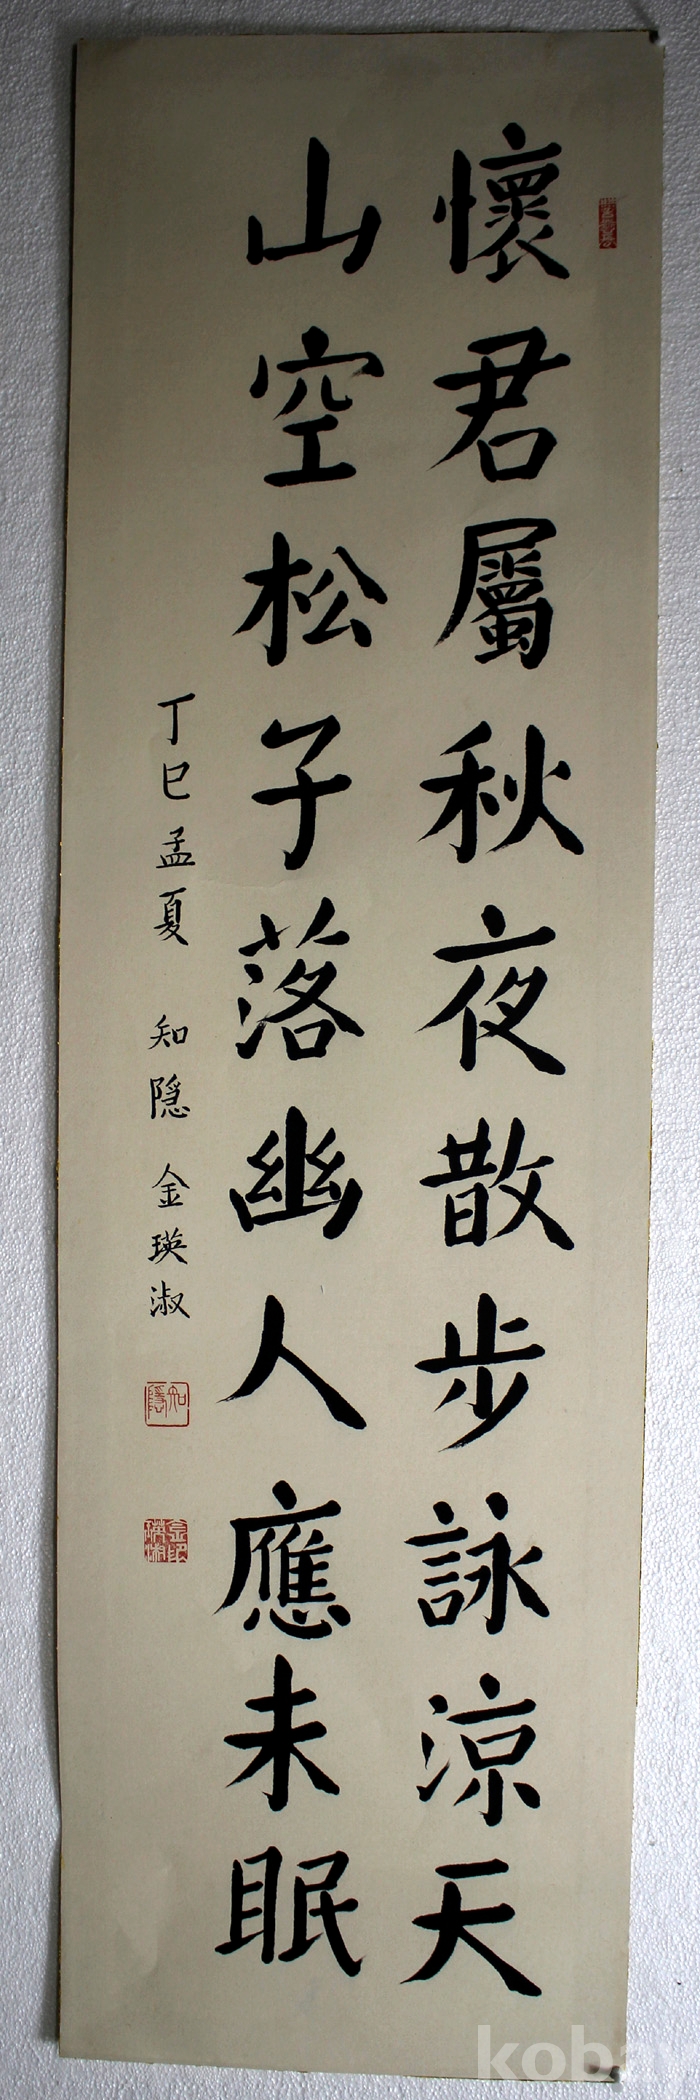 懷君屬秋夜散步詠涼天
山空松子落幽人應未眠
丁巳孟夏 知隱 金瑛淑
知隱
koba